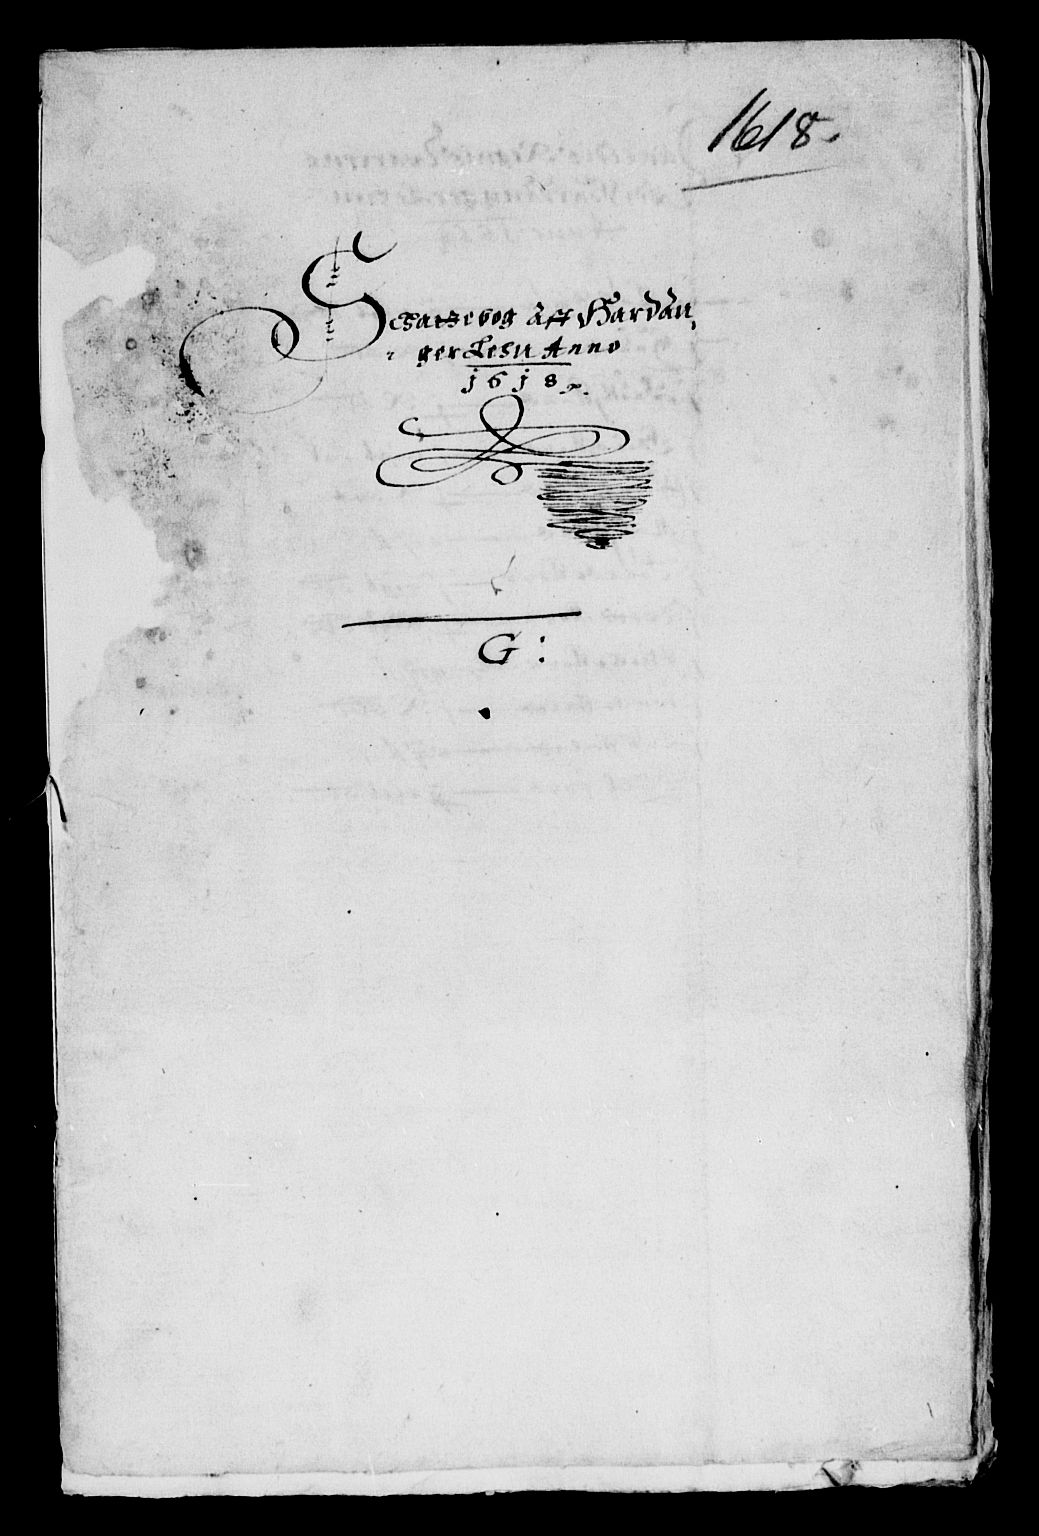 1618.
Schatzebog aff Hardan,
ger Lehn Anno
1618.
G: